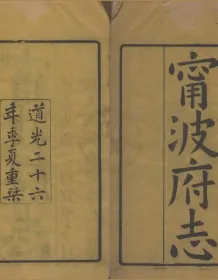 甯波府志
道光二十六
年季夏重栞